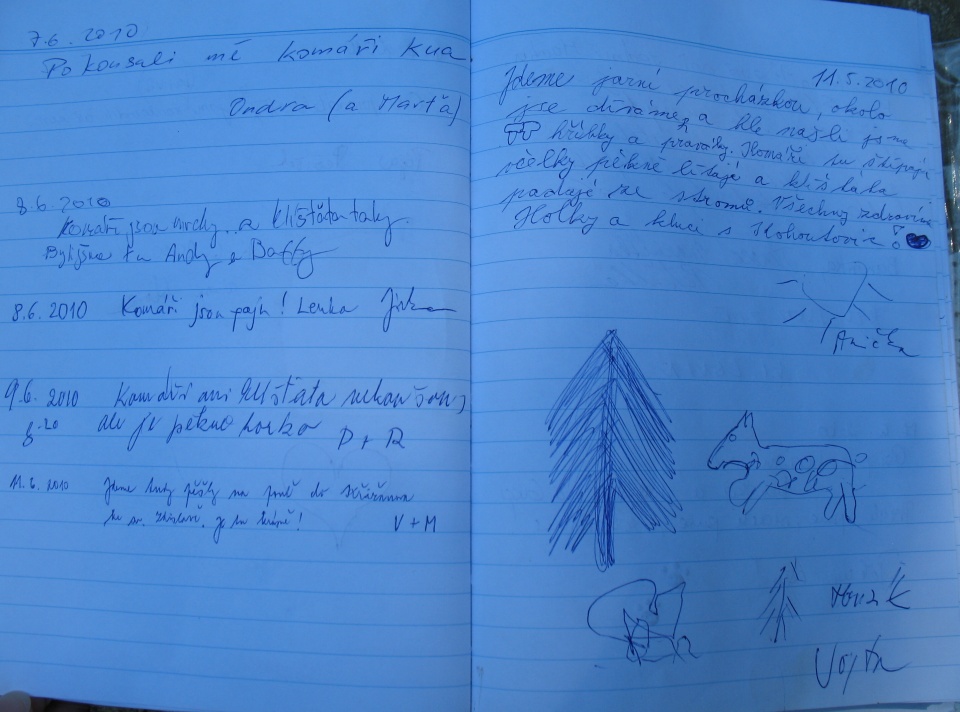 7.6. 2010
Pokousali mě komáři kua
Ondra (a Marťa)
8.6. 2010
Komáři jsou mrchy a klíšťata taky.
Byli jsme tu Andy a Baffy
8.6. 2010 Komáři jsou! Lenka Jirka
9.6. 2010 Komáři ani klíšťata nekoušou,
8.20 ale je pěkné horko P + R
11.6. 2010 Jsme tudy pěšky na do
ke sv. Zdislavě. Je tu krásně! V + M
11.5.2010
Jdeme jarní procházkou, okolo
jse díváme, a hle našli jsme
hříbky a praváky. Komáři tu štípají
včelky pěkně lítají a klíšťata
padají ze stromů. Všechny zdraví
Holky a kluci s Kohoutovic
Anička
Vojta